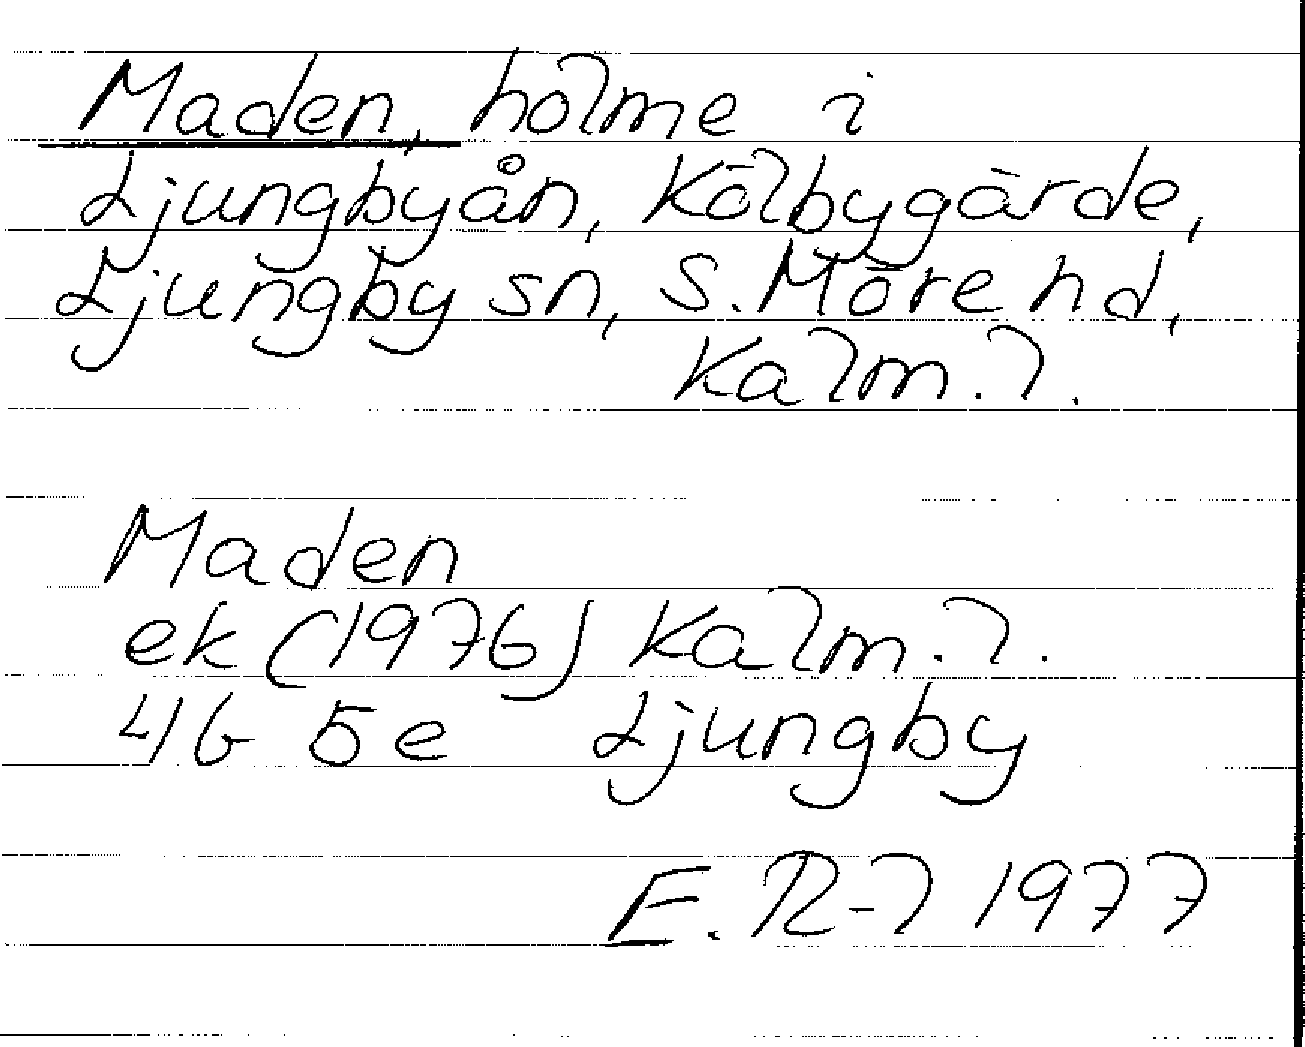 Maden, holme i
Ljungbyån, Kölbygärde,
Ljungby sn, S. Möre hd,
Kalm. l.
Maden
ek (1976) Kalm. l.
4G 5e Ljungby
E. R-l 1977